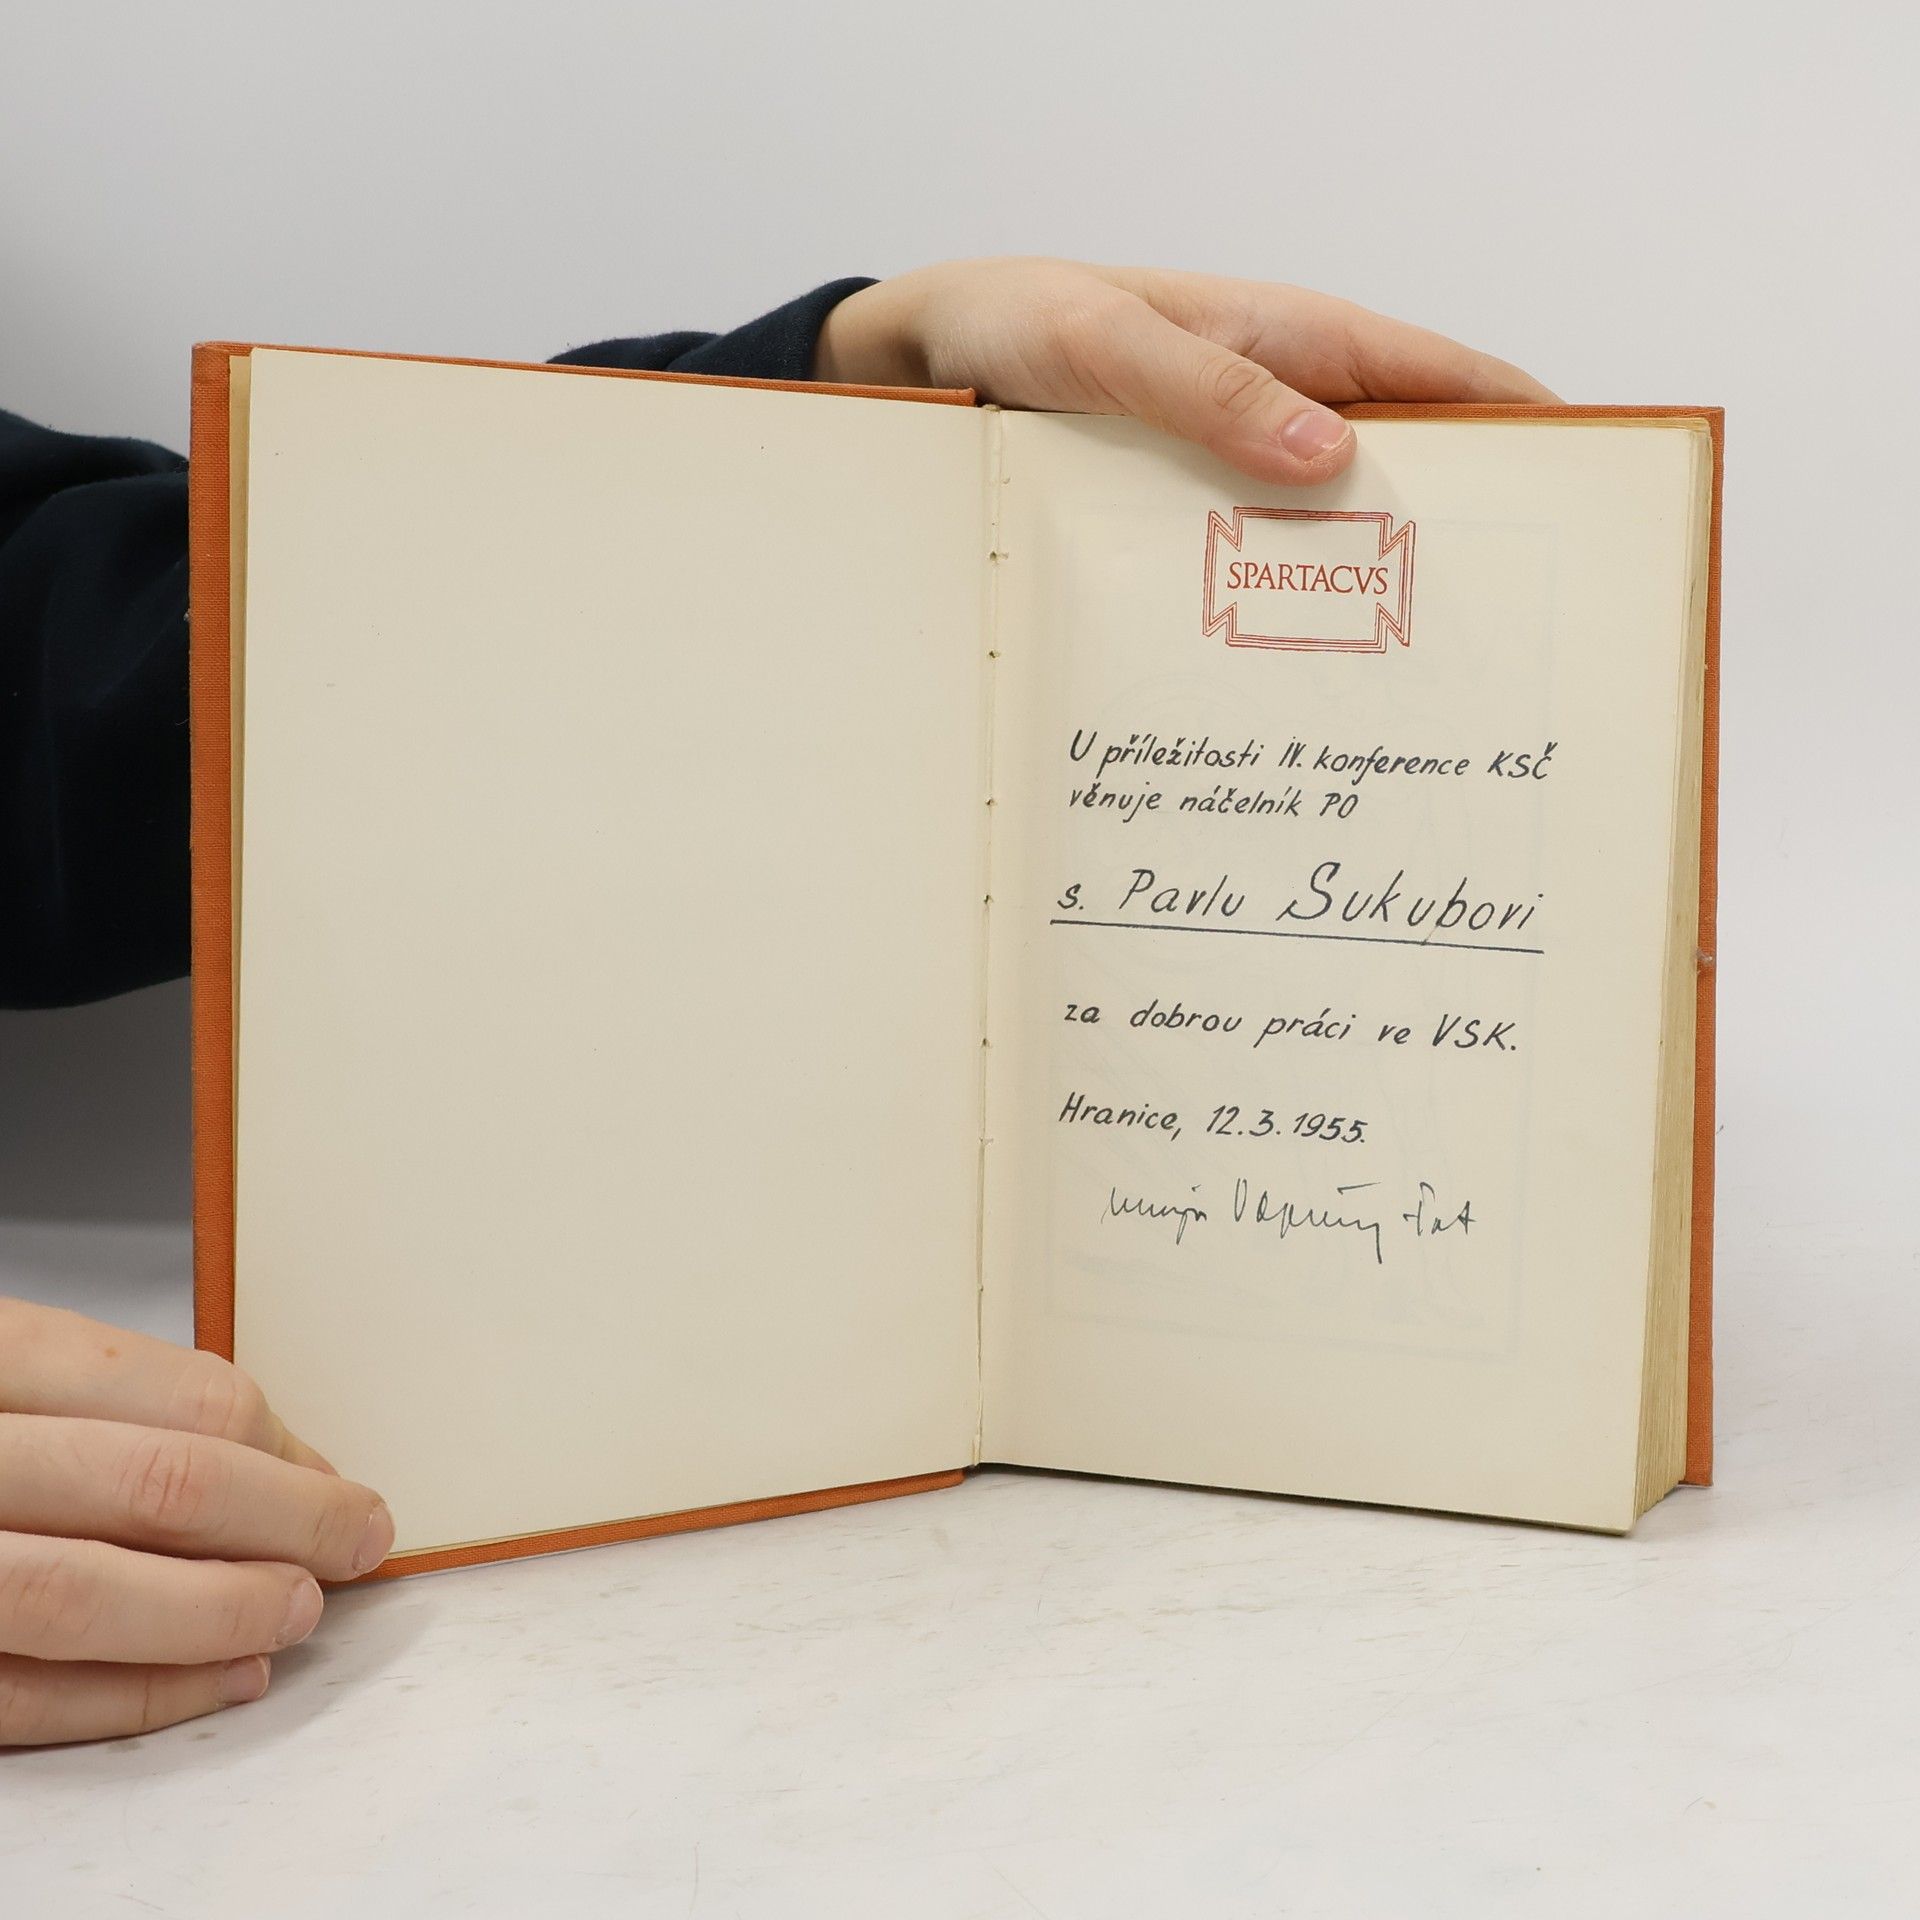 SPARTACVS
U příležitosti IV. konference KSČ
věnuje náčelník PO
s. Pavlu Sukubovi
za dobrou práci ve VSK.
Hranice, 12.3.1955.